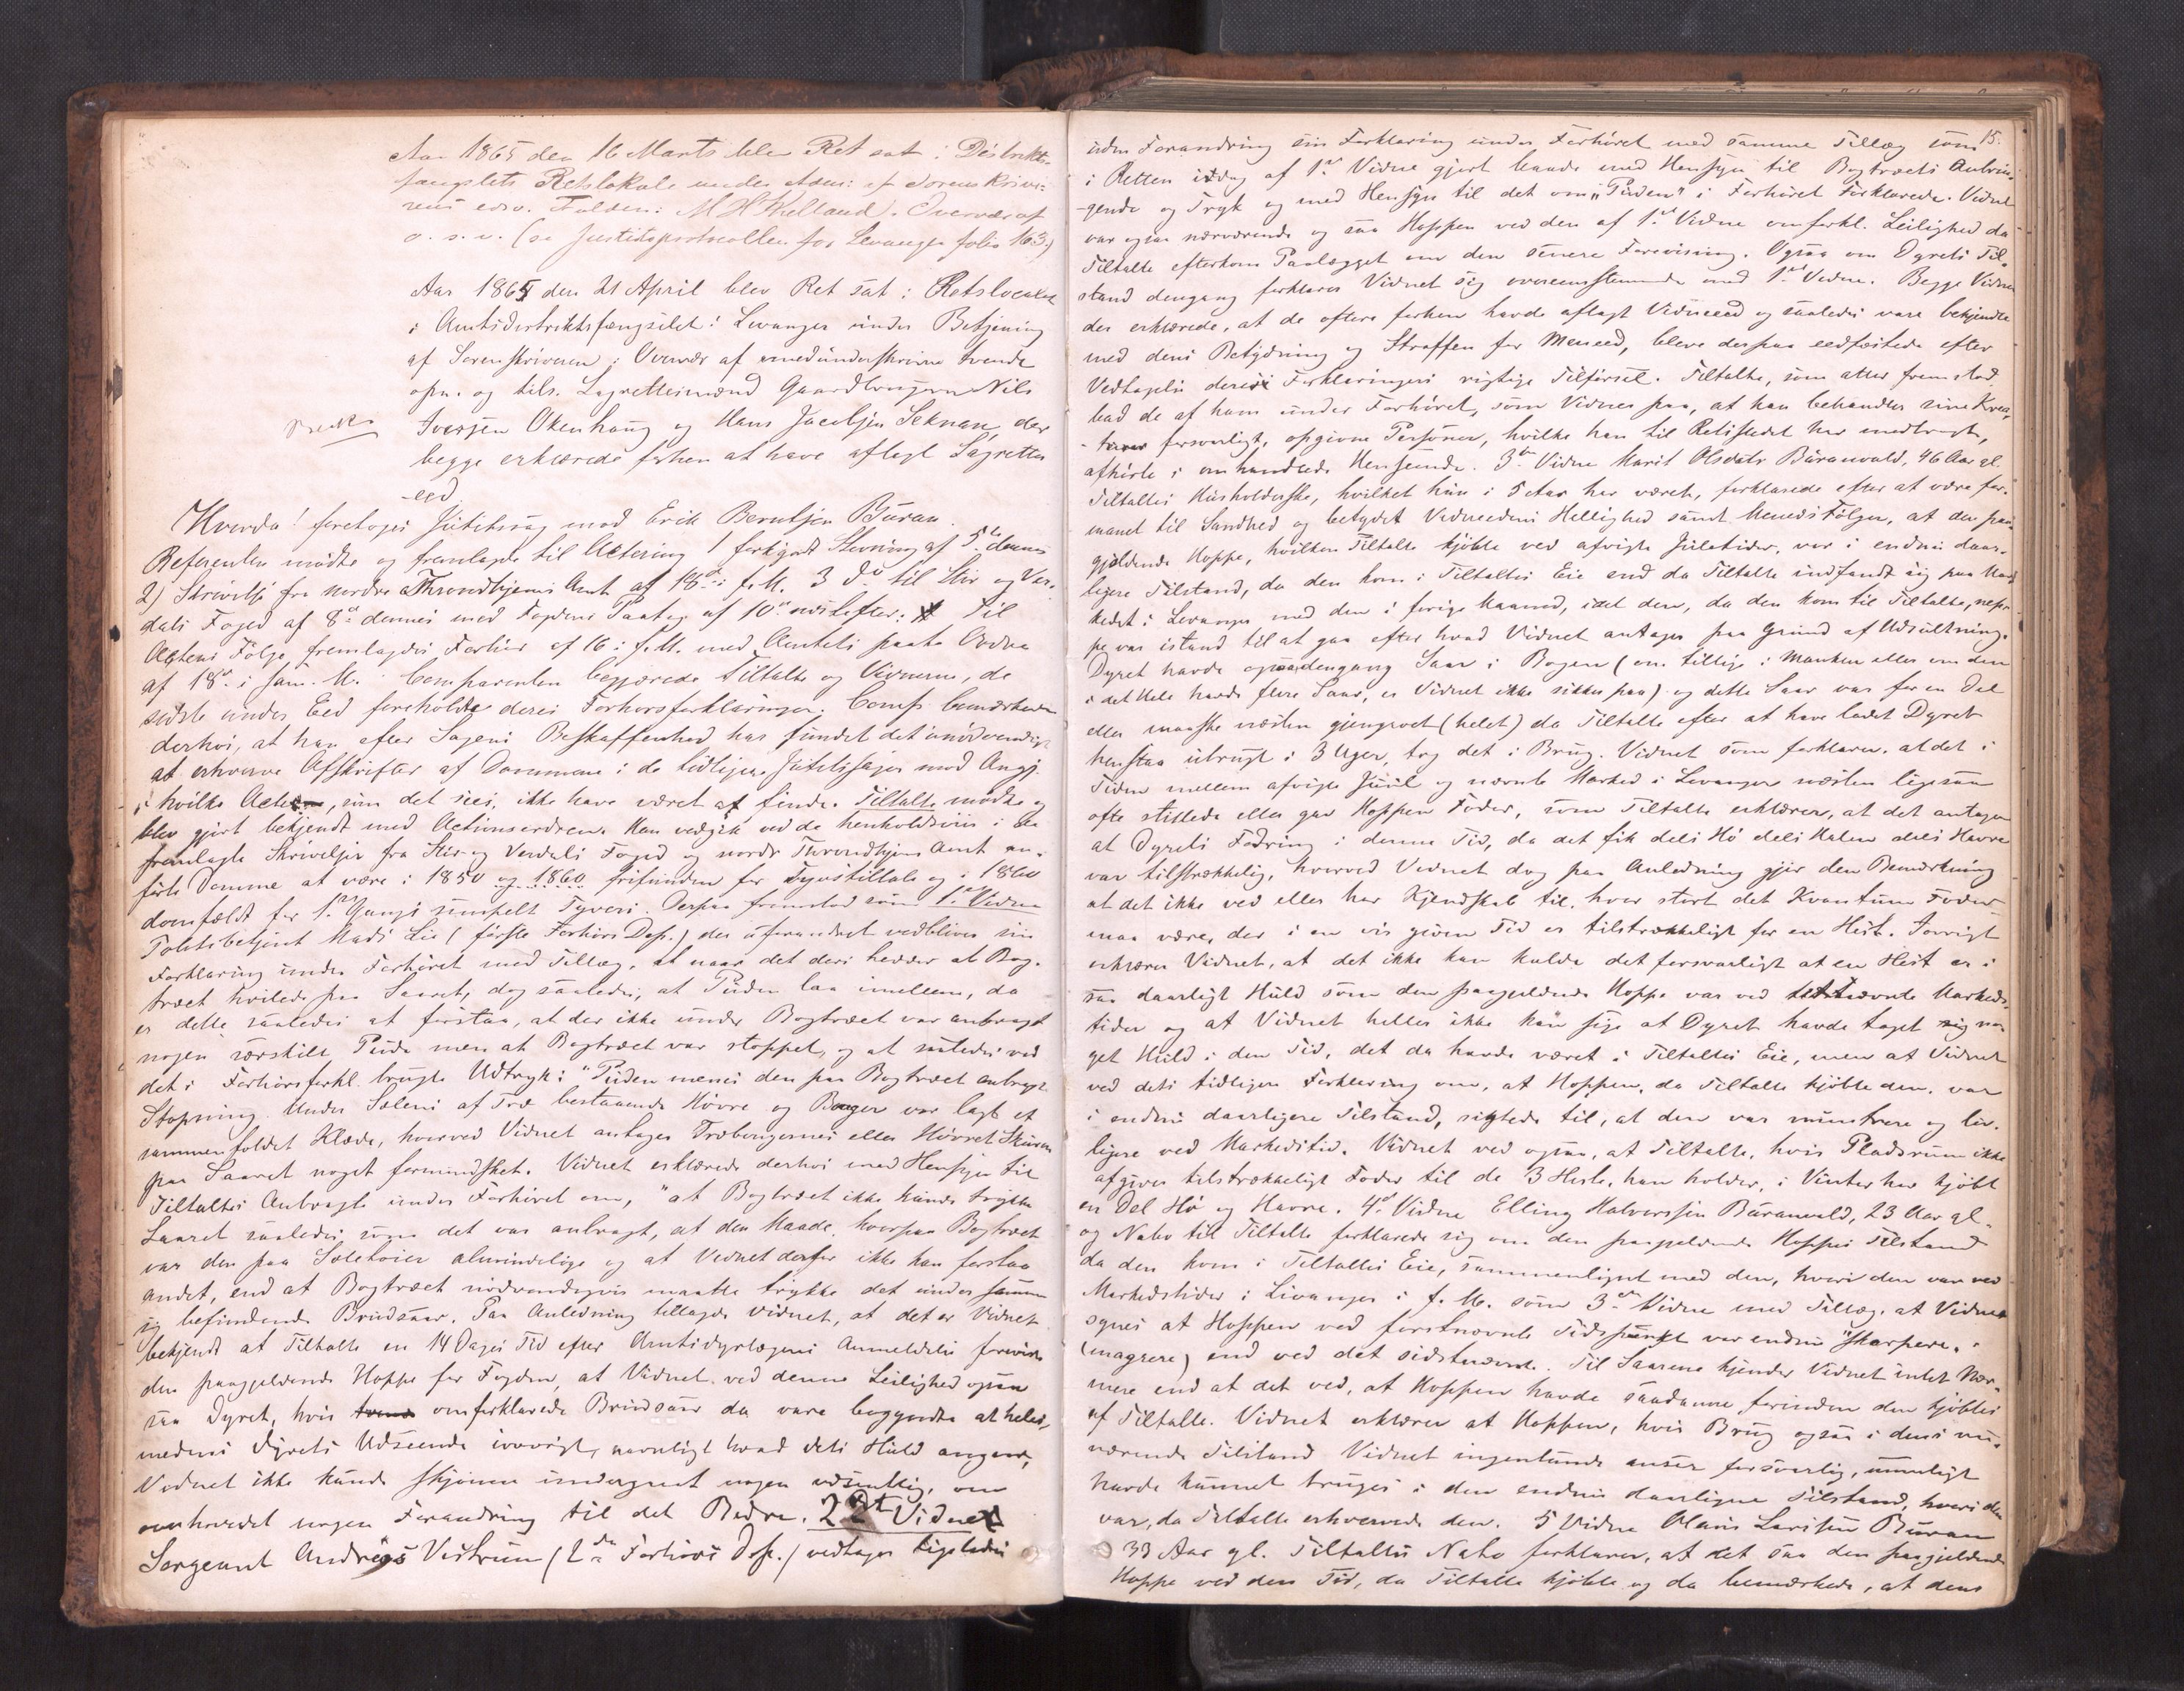 Aar 1865 den 16 Marts blev Ret sat i Distrikts-
fængslets Retslokale under Adm: af Sorenskrive-
rens edsv. Fuldm: M H Kielland. Overvær af
o. s. v. (se Justitsprotocollen for Levanger folio 163.)
Aar 1865 den 21 April blev Ret sat i Retslocalet
i Amtsdistriktsfængslet i Levanger under Betjening
af Sorenskriveren i Overvær af medunderskrevne tvende
opn. og tils. Lagrettesmænd Gaardbrugerne Nils
Iversen Okenhaug og Hans Jacobsen Seknan, der
begge erklærede forhen at have aflagt Lagrettes
-eed.
Hvorda! foretoges Justitssag mod Erik Berntsen Buran.
Referenten mødte og fremlagde til Actering 1 forkyndt Stevning af 5te dennes
2) Skrivelse fra nordre Throndhjems Amt af 18de i f. M. 3 do til Stør og Vær-
dals Foged af 8de dennes med Fogdens Paateg. af 10de næstefter: Til
Actens Følge fremlagdes Forhør af 16 i f. M. med Amtets paate Ordre
af 18de i sam. M. Comparenten begjærede Tiltalte og Vidnerne, de
sidste under Eed foreholdte deres Forhørsforklaringer. Comp. bemærkede
derhos, at han efter Sagens Beskaffenhed har fundet det unødvendigt
at erhverve Afskrifter af Dommene i de tidligere Justitssager mod Angj.
i hvilke Acter, som det sees, ikke have været at finde. Tiltalte mødte og
blev gjort bekjendt med Actionsordren. Han vedgik ved de henholdsviis i de
fremlagte Skrivelser fra Stør og Verdals Foged og nordr Throndhjems Amt an-
førte Domme at være i 1850 og 1860 frifunden for Tyvstiltale og i 1860
domfældt for 1ste Gangs simpelt Tyveri. Derpaa fremstod som 1ste Vidne
Politibetjent Mads Lie (første Forhørs Dep.) der uforandret vedbliver sin
Forklaring under Forhøret med Tillæg, at naar det deri hedder at Bog-
træet hvilede paa Saaret, dog saaledes, at Puden laa imellem, da
er dette saaledes at forstaa, at der ikke under Bogtræet var anbragt
nogen særskilt Pude men at Bogtræet var stoppet, og at saaledes ved
det i Forhørsforkl. brugte Udtryk: "Puden menes den paa Bogtræet anbragte
Stopning. Under Selens af Træ bestaaende Høvre og Boger var lagt et
sammenfoldet Klæde, hvorved Vidnet antager Træbogernes eller Høvret Skuren
paa Saaret noget formindsket. Vidnet erklærede derhos med Hensyn til
Tiltaltes Anbragte under Forhøret om, "at Bogtræet ikke kunde trykke
Saaret saaledes som det var anbragt, at den Maade, hvorpaa Bogtræet
var den paa Seletøier almindelige og at Vidnet derfor ikke kan forstaa
andet, end at Bogtræet nødvendigvis maatte trykke det under samme
sig befindende Brudsaar. Paa Anledning tillagde Vidnet, at det er Vidnet
bekjendt at Tiltalte en 14 Dages Tid efter Amtsdyrlægens Anmeldelse foreviste
den paagjeldende Hoppe for Fogden, at Vidnet ved denne Leilighed ogsaa
saa Dyret, hvis omforklarede Brudsaar da vare begyndte at heles,
medens Dyrets Udseende iøvrigt, navnligt hvad dets Huld angaar,
Vidnet ikke kunde skjønne undergaaet nogen væsentlig, om
overhovedet nogen Forandring til det Bedre. 2det Vidne
Sergeant Andreas Vestrum (2det Forhørs Dep.) vedtager ligeledes
15.
uden Forandring sin Forklaring under Forhøret med samme Tillæg som
i Retten idag af 1ste Vidne gjort baade med Hensyn til Bogtræets Anbrin-
gende og Tryk og med Hensyn til det om "Puden" i Forhøret Forklarede. Vidnet
var ogsaa nærværende og saa Hoppen ved den af 1ste Vidne omforkl. Leilighed da
Tiltalte efterkom Paalægget om den senere Forevisning. Ogsaa om Dyrets Til-
stand dengang forklarer Vidnet sig overeensstemmende med 1ste Vidne. Begge Vidner
der erklærede, at de oftere forhen havde aflagt Vidneeed og saaledes vare bekjendte
med dens Betydning og Straffen for Meneed, bleve derpaa eedfæstede efter
Vedtagelse deres Forklaringers rigtige Tilførsel. Tiltalte, som atter fremstod
bad de af ham under Forhøret, som Vidner paa, at han behandler sine Krea-
turer forsvarligt, opgivne Personer, hvilke han til Retsstedet har medbragt,
afhørte i omhandlede Henseende. 3die Vidne Marit Olsdatr Buranvald, 46 Aar gl.
Tiltaltes Huusholderske, hvilket hun i 5 Aar har været, forklarede efter at være for-
manet til Sandhed og betydet Vidneedens Hellighed samt Meneeds Følger, at den paa-
gjældende Hoppe, hvilken Tiltalte kjøbte ved afvigte Juletider, var i endnu daar-
ligere Tilstand, da den kom i Tiltaltes Eie end da Tiltalte indfandt sig paa Mar-
kedet i Levanger med den i forrige Maaned, idet den, da den kom til Tiltalte, nep-
pe var istand til at gaa efter hvad Vidnet antager paa Grund af Udsultning.
Dyret havde ogsaa dengang Saar i Bogen (om tillige i Manken eller om den
i det Hele havde flere Saar, er Vidnet ikke sikker paa) og dette Saar var for en Del
eller maaske næsten gjengroet (helet) da Tiltalte efter at have ladet Dyret
henstaa ubrugt i 3 Uger, tog det i Brug. Vidnet som forklarer, at det i
Tiden mellem afvigte Juul og nævnte Marked i Levanger næsten ligesaa
ofte stellede eller gav Hoppen Foder, som Tiltalte erklærer, at det antager
at Dyrets Fodring i denne Tid, da det fik dels Hø dels Halm dels Havre
var tilstrækkelig, hvorved Vidnet dog paa Anledning gjør den Bemærkning
at det ikke ved eller har Kjendskab til, hvor stort det Kvantum Foder
maa være, der i en vis given Tid er tilstrækkeligt for en Hest. Iøvrigt
erklærer Vidnet, at det ikke kan kalde det forsvarligt at en Hest er i
saa daarligt Huld som den paagjeldende Hoppe var ved sidstnævnte Markeds-
tider og at Vidnet heller ikke kan sige at Dyret havde taget sig no-
get Huld i den Tid, det da havde været i Tiltaltes Eie, men at Vidnet
ved dets tidligere Forklaring om, at Hoppen, da Tiltalte kjøbte den, var
i endnu daarligere Tilstand, sigtede til, at den var muntrere og liv-
ligere ved Markedstid. Vidnet ved ogsaa, at Tiltalte, hvis Pladsrum ikke
afgiver tilstrækkeligt Foder til de 3 Heste, han holder, i Vinter har kjøbt
en Del Hø og Havre. 4de Vidne Elling Halvorsen Buranvald, 23 Aar gl.
og Nabo til Tiltalte forklarede sig om den paagjeldende Hoppes Tilstand
da den kom i Tiltaltes Eie, sammenlignet med den, hvori den var ved
Markedstider i Levanger i f. M. som 3die Vidne med Tillæg, at Vidnet
synes at Hoppen ved førstnævnte Tidspunkt var endnu "skarpere"
(magrere) end ved det sidstnævnte. Til Saarene kjender Vidnet intet nær-
mere end at det ved, at Hoppen havde saadanne forinden den kjøbtes
af Tiltalte. Vidnet erklærer at Hoppen, hvis Brug ogsaa i dens nu-
værende Tilstand Vidnet ingenlunde anser forsvarlig, umuligt
havde kunnet bruges i den endnu daarligere Tilstand, hvori den
var, da Tiltalte erhvervede den. 5 Vidne Olaus Larsen Buran
33 Aar gl. Tiltaltes Nabo forklarer, at det saa den paagjeldende
Hoppe ved den Tid, da Tiltalte kjøbte og da bemærkede, at dens